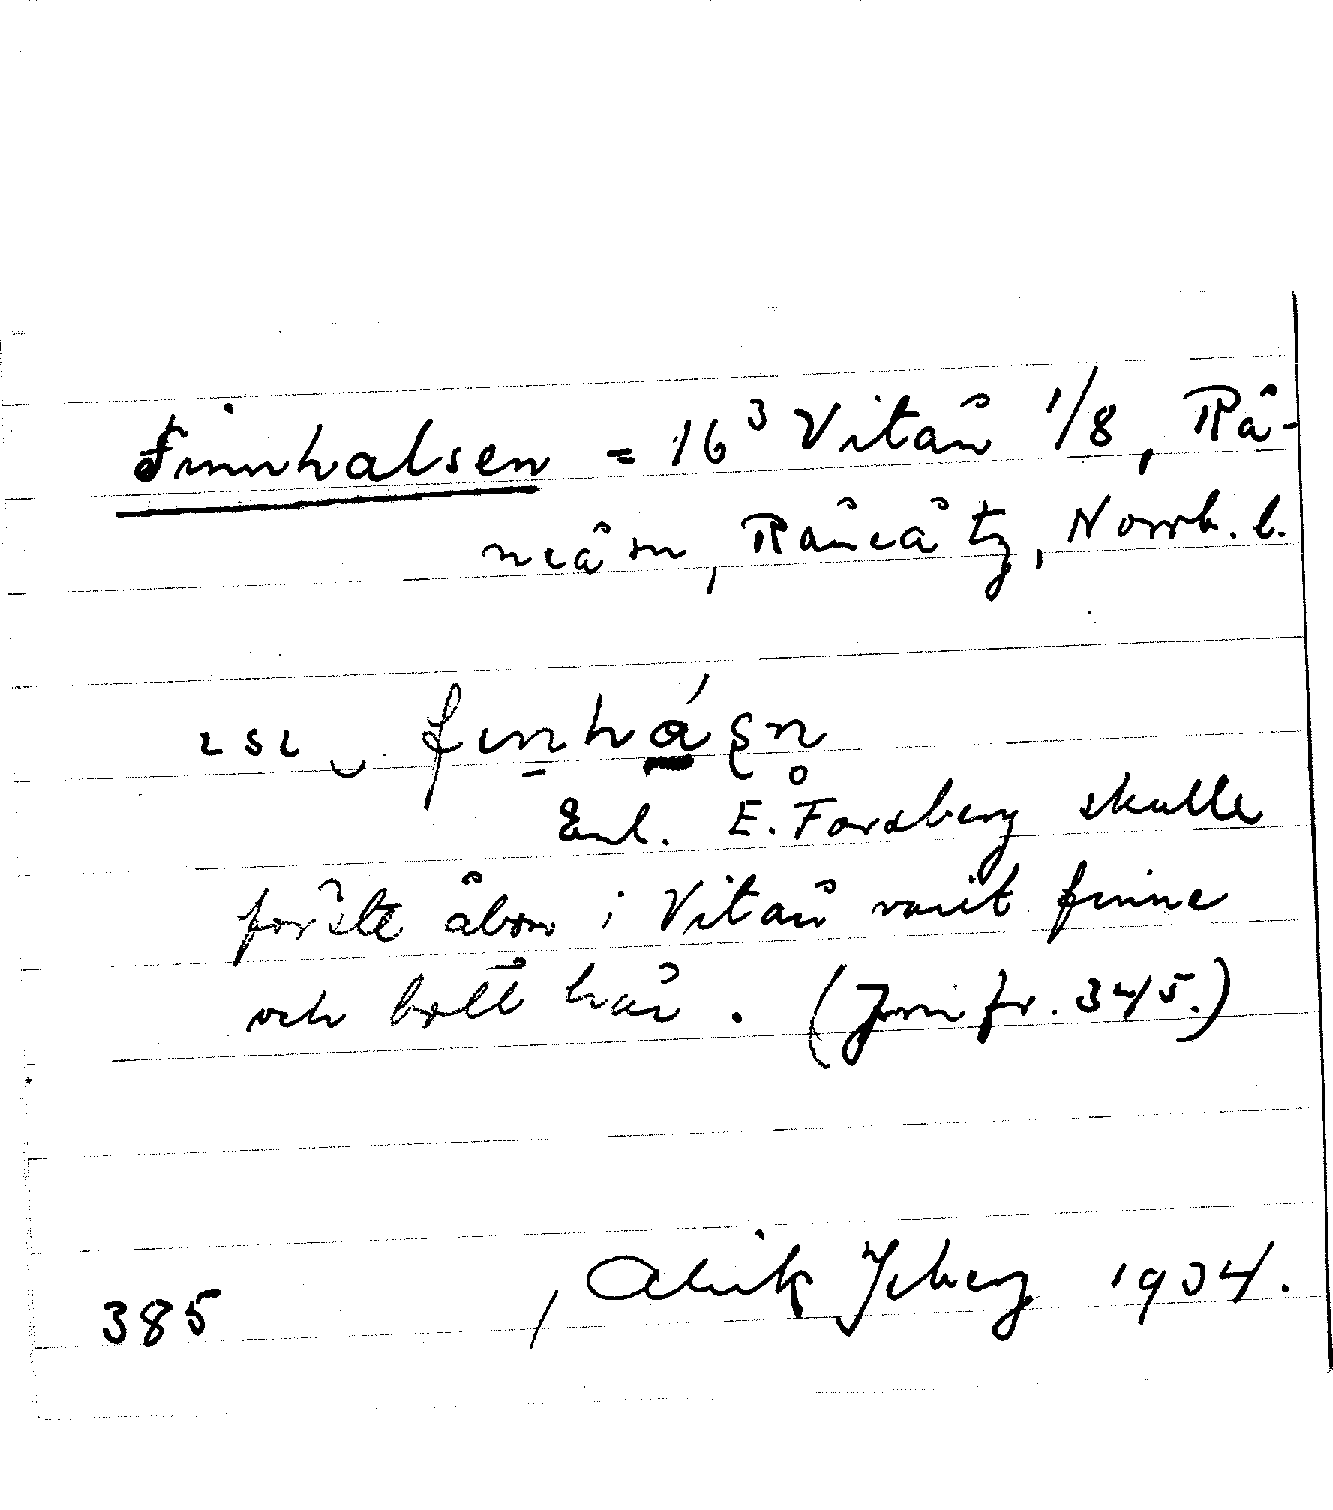 Finnhalsen = 16³ Vitån 1/8, Rå-
neå sn, Råneå tg, Norrb. l.
finhásn
Enl. E. Forsberg skulle
förste åbon i Vitån varit finne
och bott här. (Jmfr. 345.)
385 / Alrik Ysberg 1934.